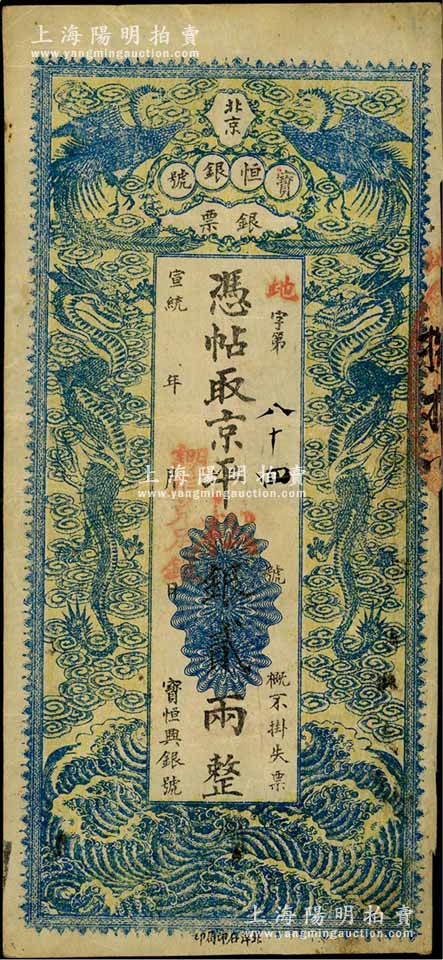 上海陽明拍賣
www.yangmingauction.com
北京
寶恒銀號
銀票
地字第八十四號
概不掛失票
憑帖取京平
銀貳兩整
宣統
年
寶恒興銀號
上海陽明拍賣
www.yangmingauction.com
北洋石印官局印
上海陽明拍賣
www.yangmingauction.com